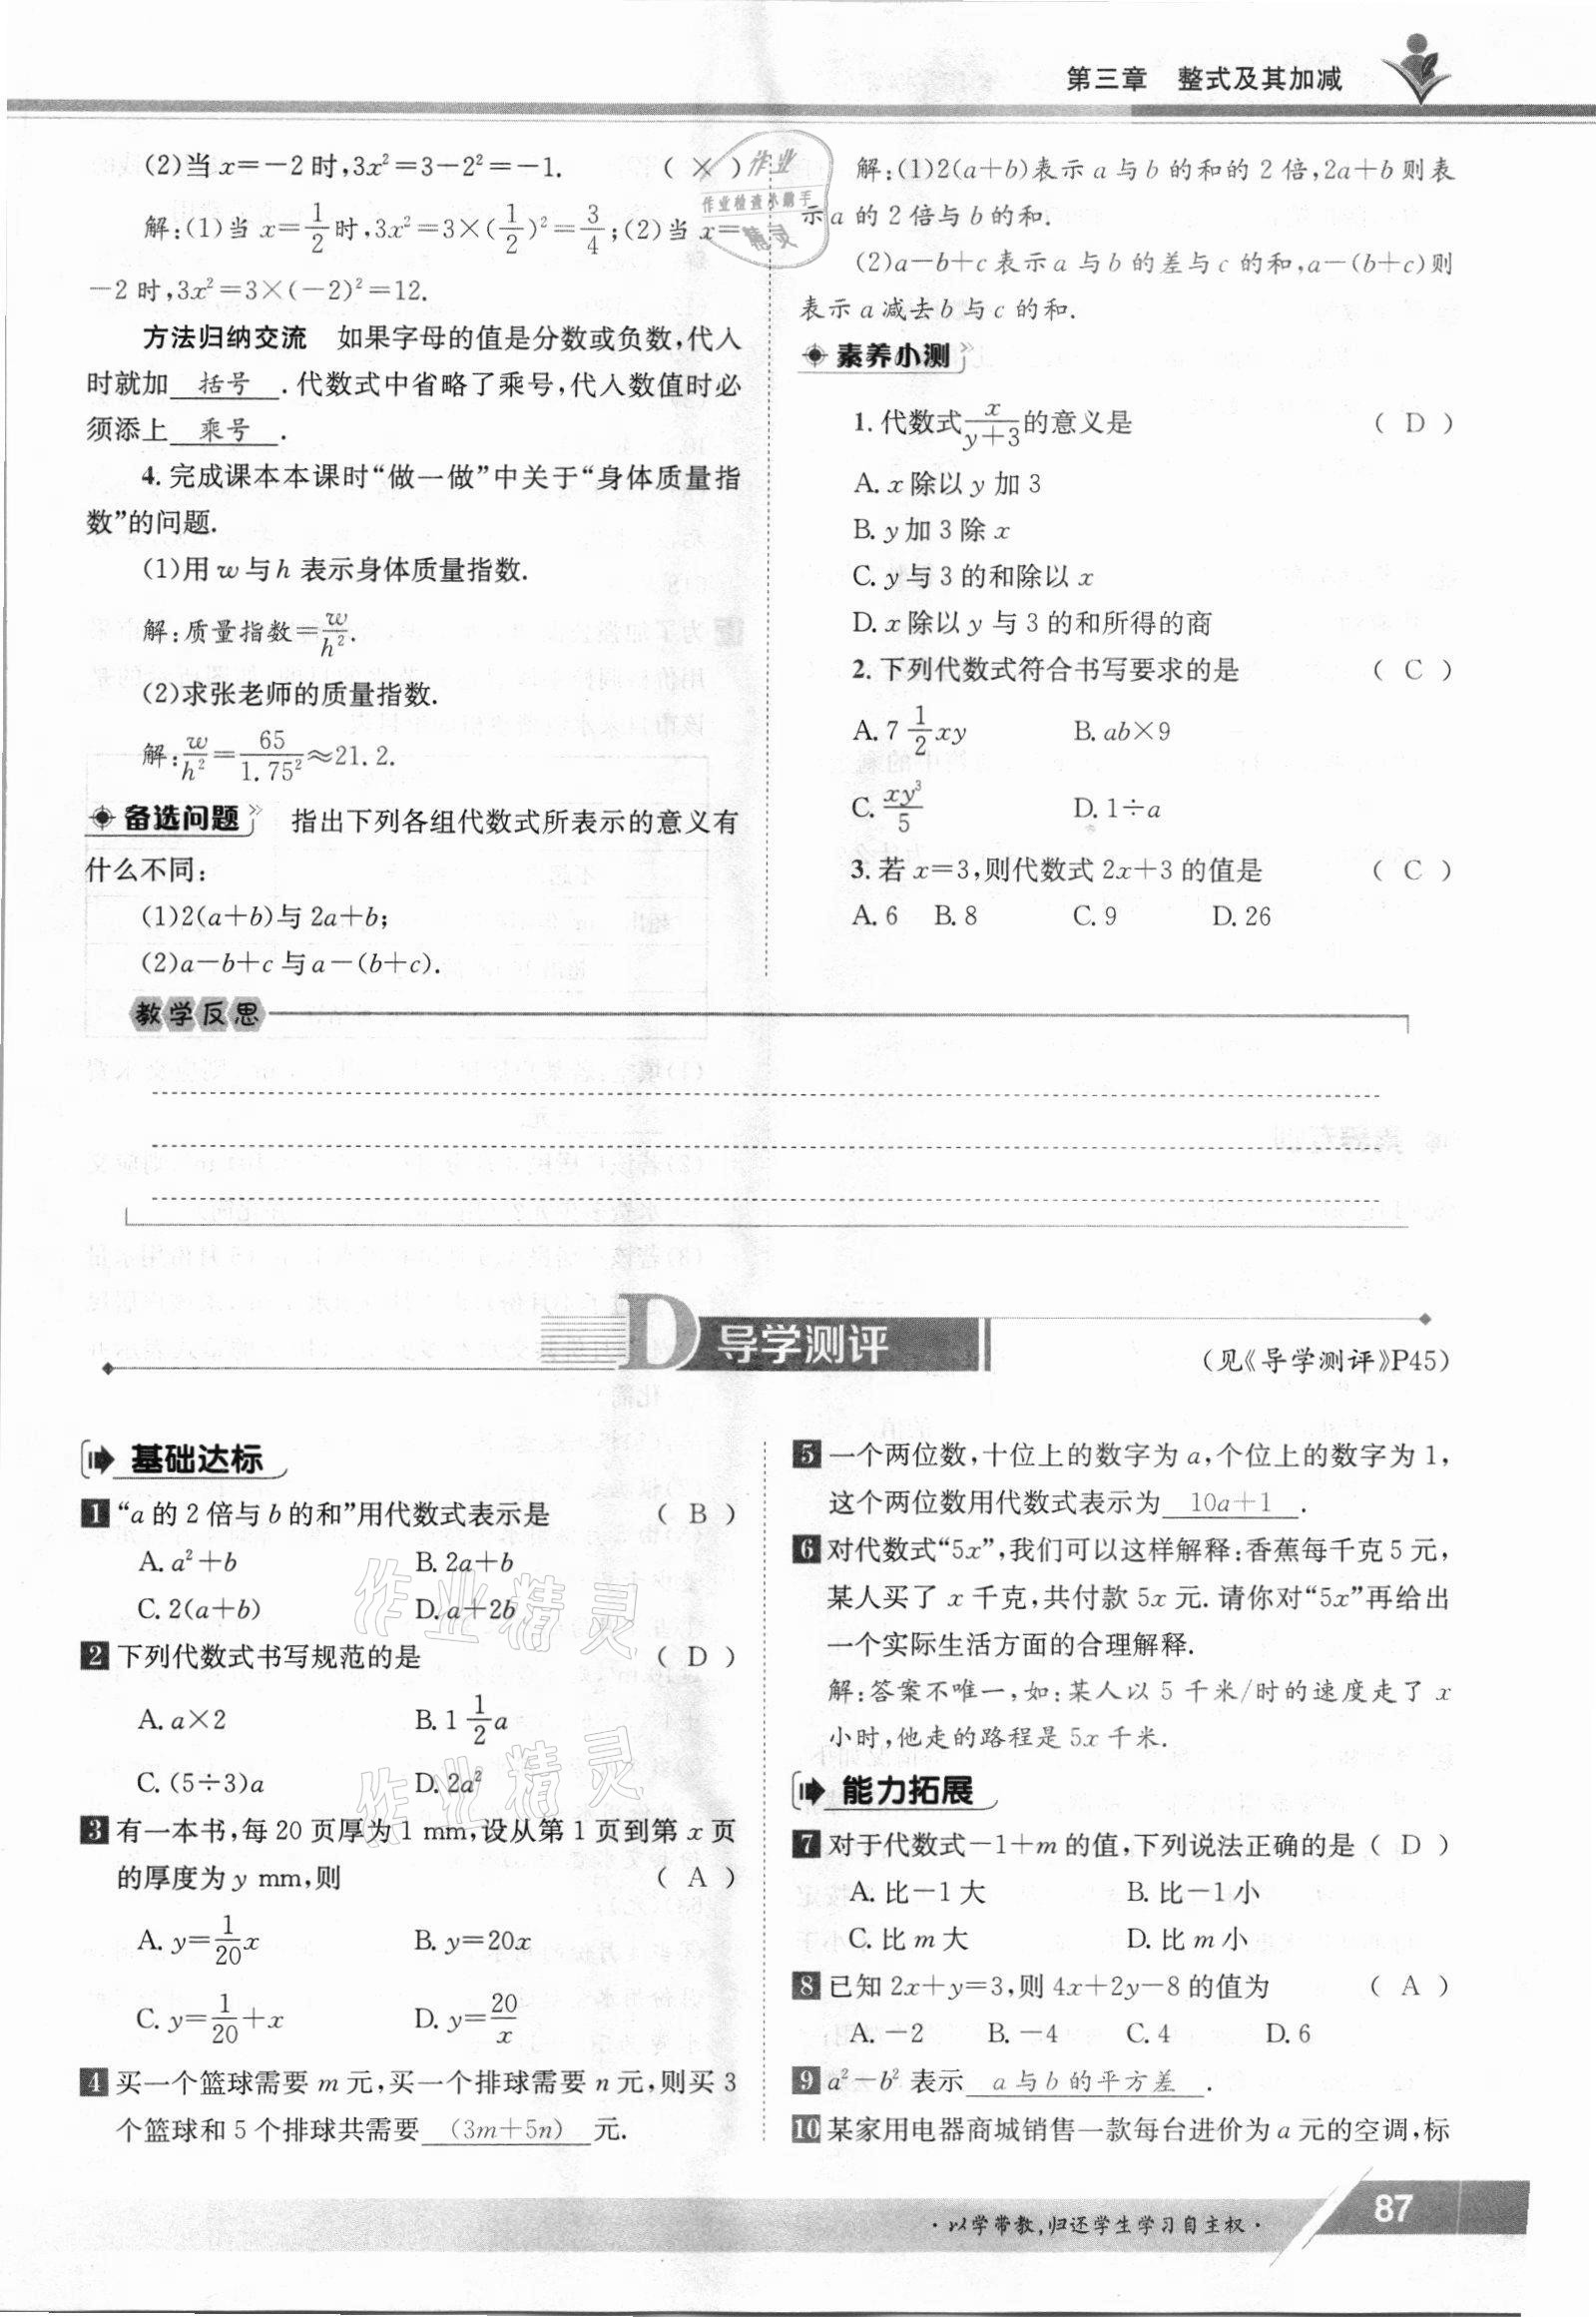 第三章 整式及其加减
(2)当 x=-2 时,3x²=3-2²=-1. ( × )
解:(1)当 x=1/2时,3x²=3×(1/2)²=3/4;(2)当 x=
-2 时,3x²=3×(-2)²=12.
方法归纳交流 如果字母的值是分数或负数,代入
时就加 括号 .代数式中省略了乘号,代入数值时必
须添上 乘号 .
4.完成课本本课时“做一做”中关于“身体质量指
数”的问题.
(1)用 w 与 h 表示身体质量指数.
解:质量指数=w/h².
(2)求张老师的质量指数.
解:w/h²=65/1.75²≈21.2.
备选问题 指出下列各组代数式所表示的意义有
什么不同:
(1)2(a+b)与 2a+b;
(2)a-b+c 与 a-(b+c).
解:(1)2(a+b)表示 a 与 b 的和的 2 倍,2a+b 则表
示 a 的 2 倍与 b 的和.
(2)a-b+c 表示 a 与 b 的差与 c 的和,a-(b+c)则
表示 a 减去 b 与 c 的和.
素养小测
1.代数式x/(y+3)的意义是 ( D )
A. x 除以 y 加 3
B. y 加 3 除 x
C. y 与 3 的和除以 x
D. x 除以 y 与 3 的和所得的商
2.下列代数式符合书写要求的是 ( C )
A. 7 1/2 xy B. ab×9
C. xy³/5 D. 1÷a
3.若 x=3,则代数式 2x+3 的值是 ( C )
A. 6 B. 8 C. 9 D. 26
作业
作业检查小助手
精灵
教学反思
D 导学测评
(见《导学测评》P45)
基础达标
1 “a 的 2 倍与 b 的和”用代数式表示是 ( B )
A. a²+b B. 2a+b
C. 2(a+b) D. a+2b
2 下列代数式书写规范的是 ( D )
A. a×2 B. 1 1/2 a
C. (5÷3)a D. 2a²
3 有一本书,每 20 页厚为 1 mm,设从第 1 页到第 x 页
的厚度为 y mm,则 ( A )
A. y=1/20 x B. y=20x
C. y=1/20+x D. y=20/x
4 买一个篮球需要 m 元,买一个排球需要 n 元,则买 3
个篮球和 5 个排球共需要 (3m+5n) 元.
作业精灵
作业精灵
5 一个两位数,十位上的数字为 a,个位上的数字为 1,
这个两位数用代数式表示为 10a+1 .
6 对代数式“5x”,我们可以这样解释:香蕉每千克 5 元,
某人买了 x 千克,共付款 5x 元.请你对“5x”再给出
一个实际生活方面的合理解释.
解:答案不唯一,如:某人以 5 千米/时的速度走了 x
小时,他走的路程是 5x 千米.
能力拓展
7 对于代数式-1+m 的值,下列说法正确的是 ( D )
A. 比-1 大 B. 比-1 小
C. 比 m 大 D. 比 m 小
8 已知 2x+y=3,则 4x+2y-8 的值为 ( A )
A. -2 B. -4 C. 4 D. 6
9 a²-b² 表示 a 与 b 的平方差 .
10 某家用电器商城销售一款每台进价为 a 元的空调,标
·以学带教,归还学生学习自主权·
87